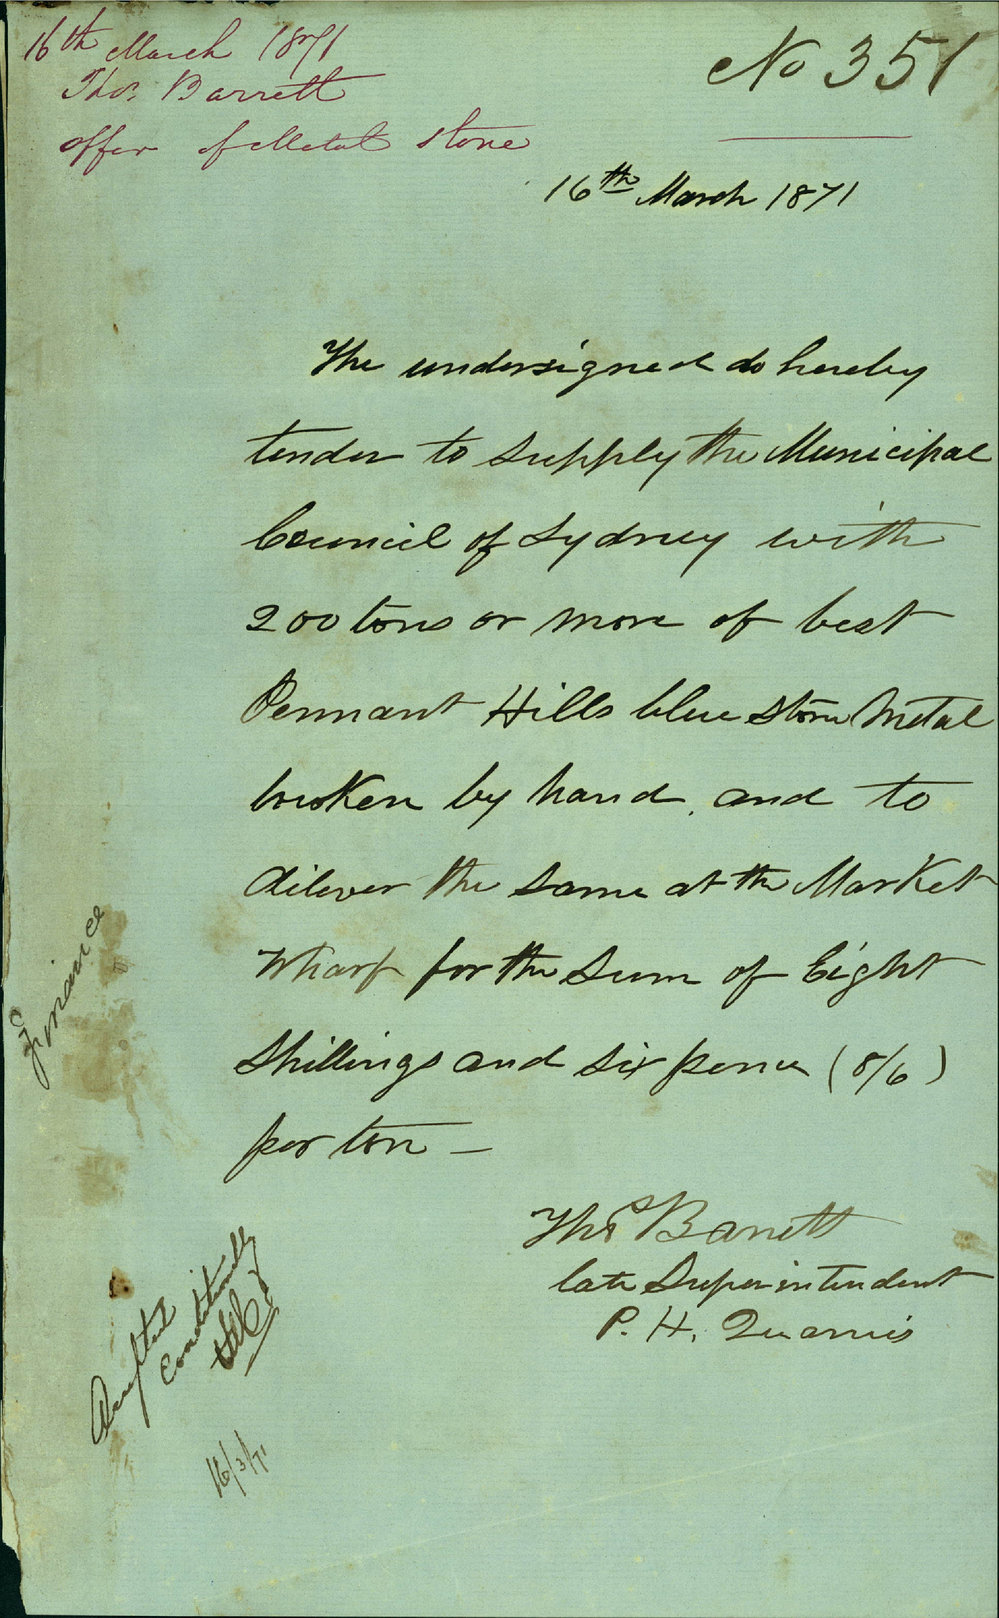 16th March 1871
Thos. Barrett
offer of Metal stone
No 351
16th March 1871
The undersigned do hereby
tender to supply the Municipal
Council of Sydney with
200 tons or more of best
Pennant Hills blue stone Metal
broken by hand, and to
diliver the same at the Market
Wharf for the Sum of Eight
Shillings and six pence (8/6)
per ton —
Thos Barrett
late Superintendent
P. H. Quarries
Finance
Accepted
Conditionally
16/3/71